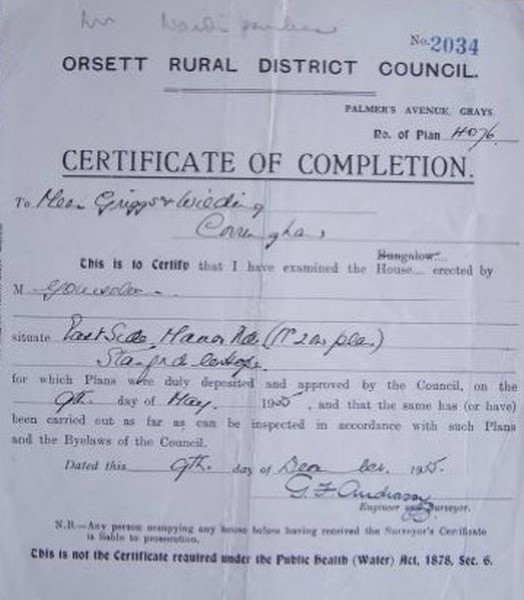 No. 2034
ORSETT RURAL DISTRICT COUNCIL.
PALMER'S AVENUE, GRAYS
No. of Plan 4076
CERTIFICATE OF COMPLETION.
To Griggs &
Corringham
Bungalow
This is to Certify that I have examined the House.... erected by
M yourselves
situate East Side, Manor Rd. (No 2 on plan)
Stanford le Hope.
for which Plans were duly deposited and approved by the Council, on the
9th. day of May. 1925, and that the same has (or have)
been carried out as far as can be inspected in accordance with such Plans
and the Byelaws of the Council.
Dated this 9th. day of December. 1925.
G. F.
Engineer and Surveyor.
N.B.—Any person occupying any house before having received the Surveyor's Certificate
is liable to prosecution.
This is not the Certificate required under the Public Health (Water) Act, 1878, Sec. 6.